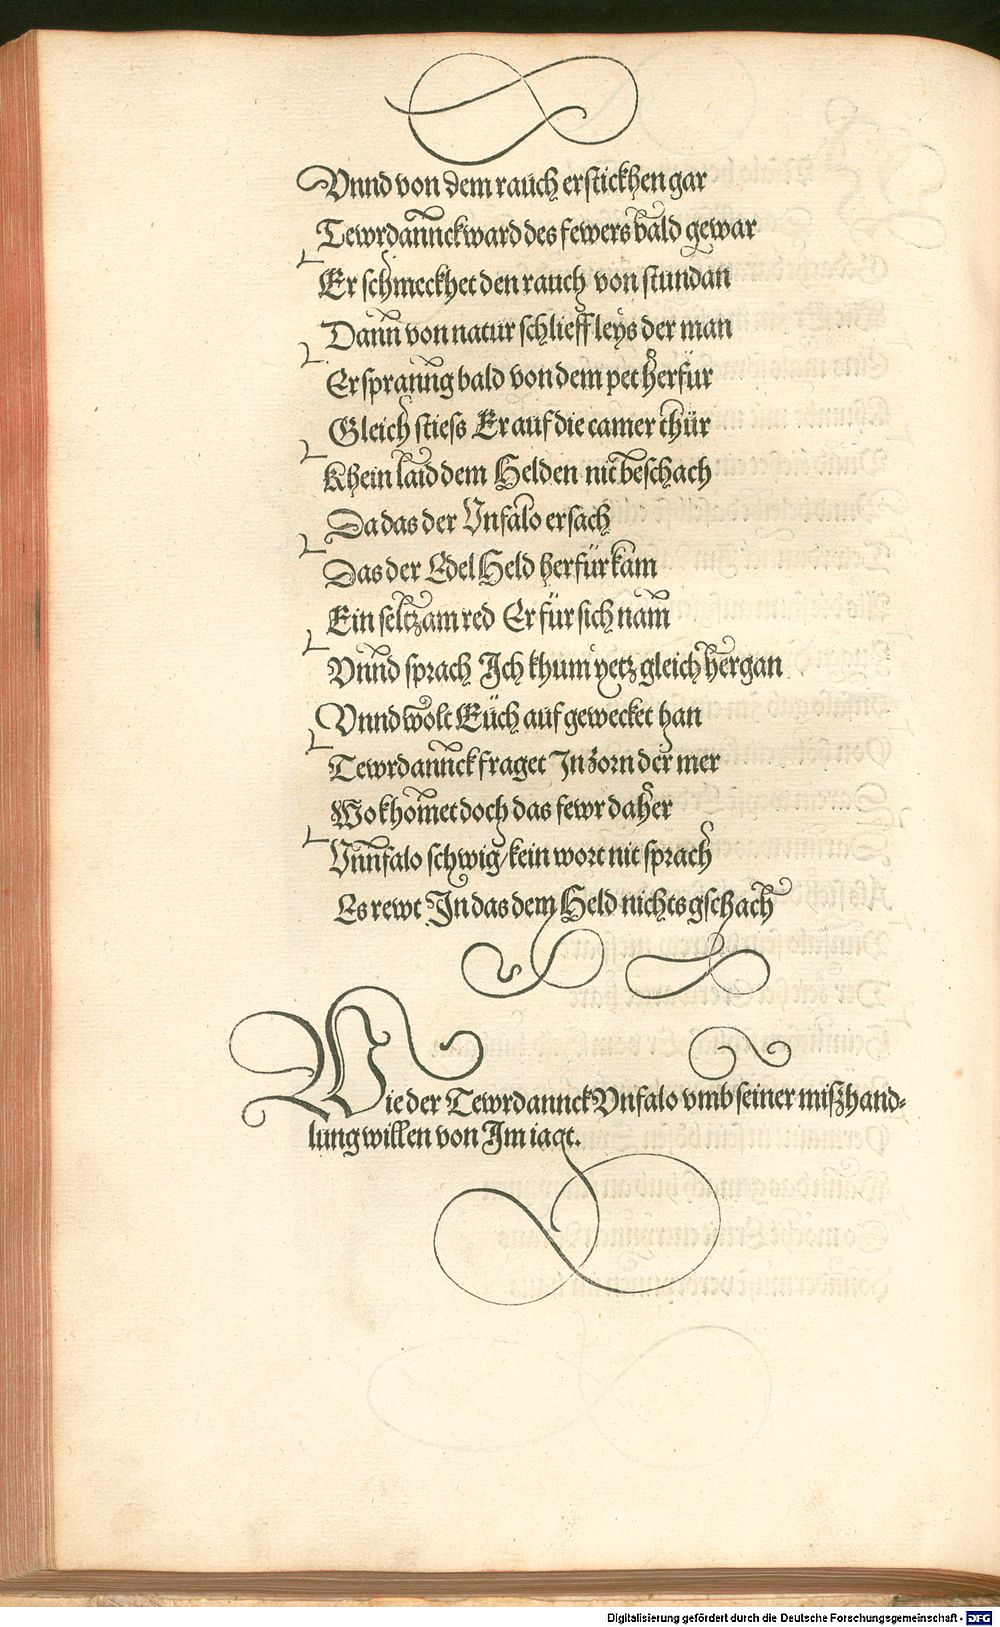 Vnnd von dem rauch erstickhen gar
Tewrdannck ward des fewers bald gewar
Er schmeckhet den rauch von stundan
Dann von natur schlieff leys der man
Er spranng bald von dem pet herfür
Gleich stiess Er auf die camer thür
Khein laid dem Helden nit beschach
Da das der Vnfalo ersach
Das der Edel Held herfür kam
Ein seltzam red Er für sich nam
Vnnd sprach Ich khum yetz gleich hergan
Vnnd wolt Eüch auf gewecket han
Tewrdannck fraget In zorn der mer
Wo khomet doch das fewr daher
Vnnfalo schwig / kein wort nit sprach
Es rewt In das dem Held nichts gschach
Wie der Tewrdannck Vnfalo vmb seiner miszhand-
lung willen von Im iagt.
Digitalisierung gefördert durch die Deutsche Forschungsgemeinschaft - DFG